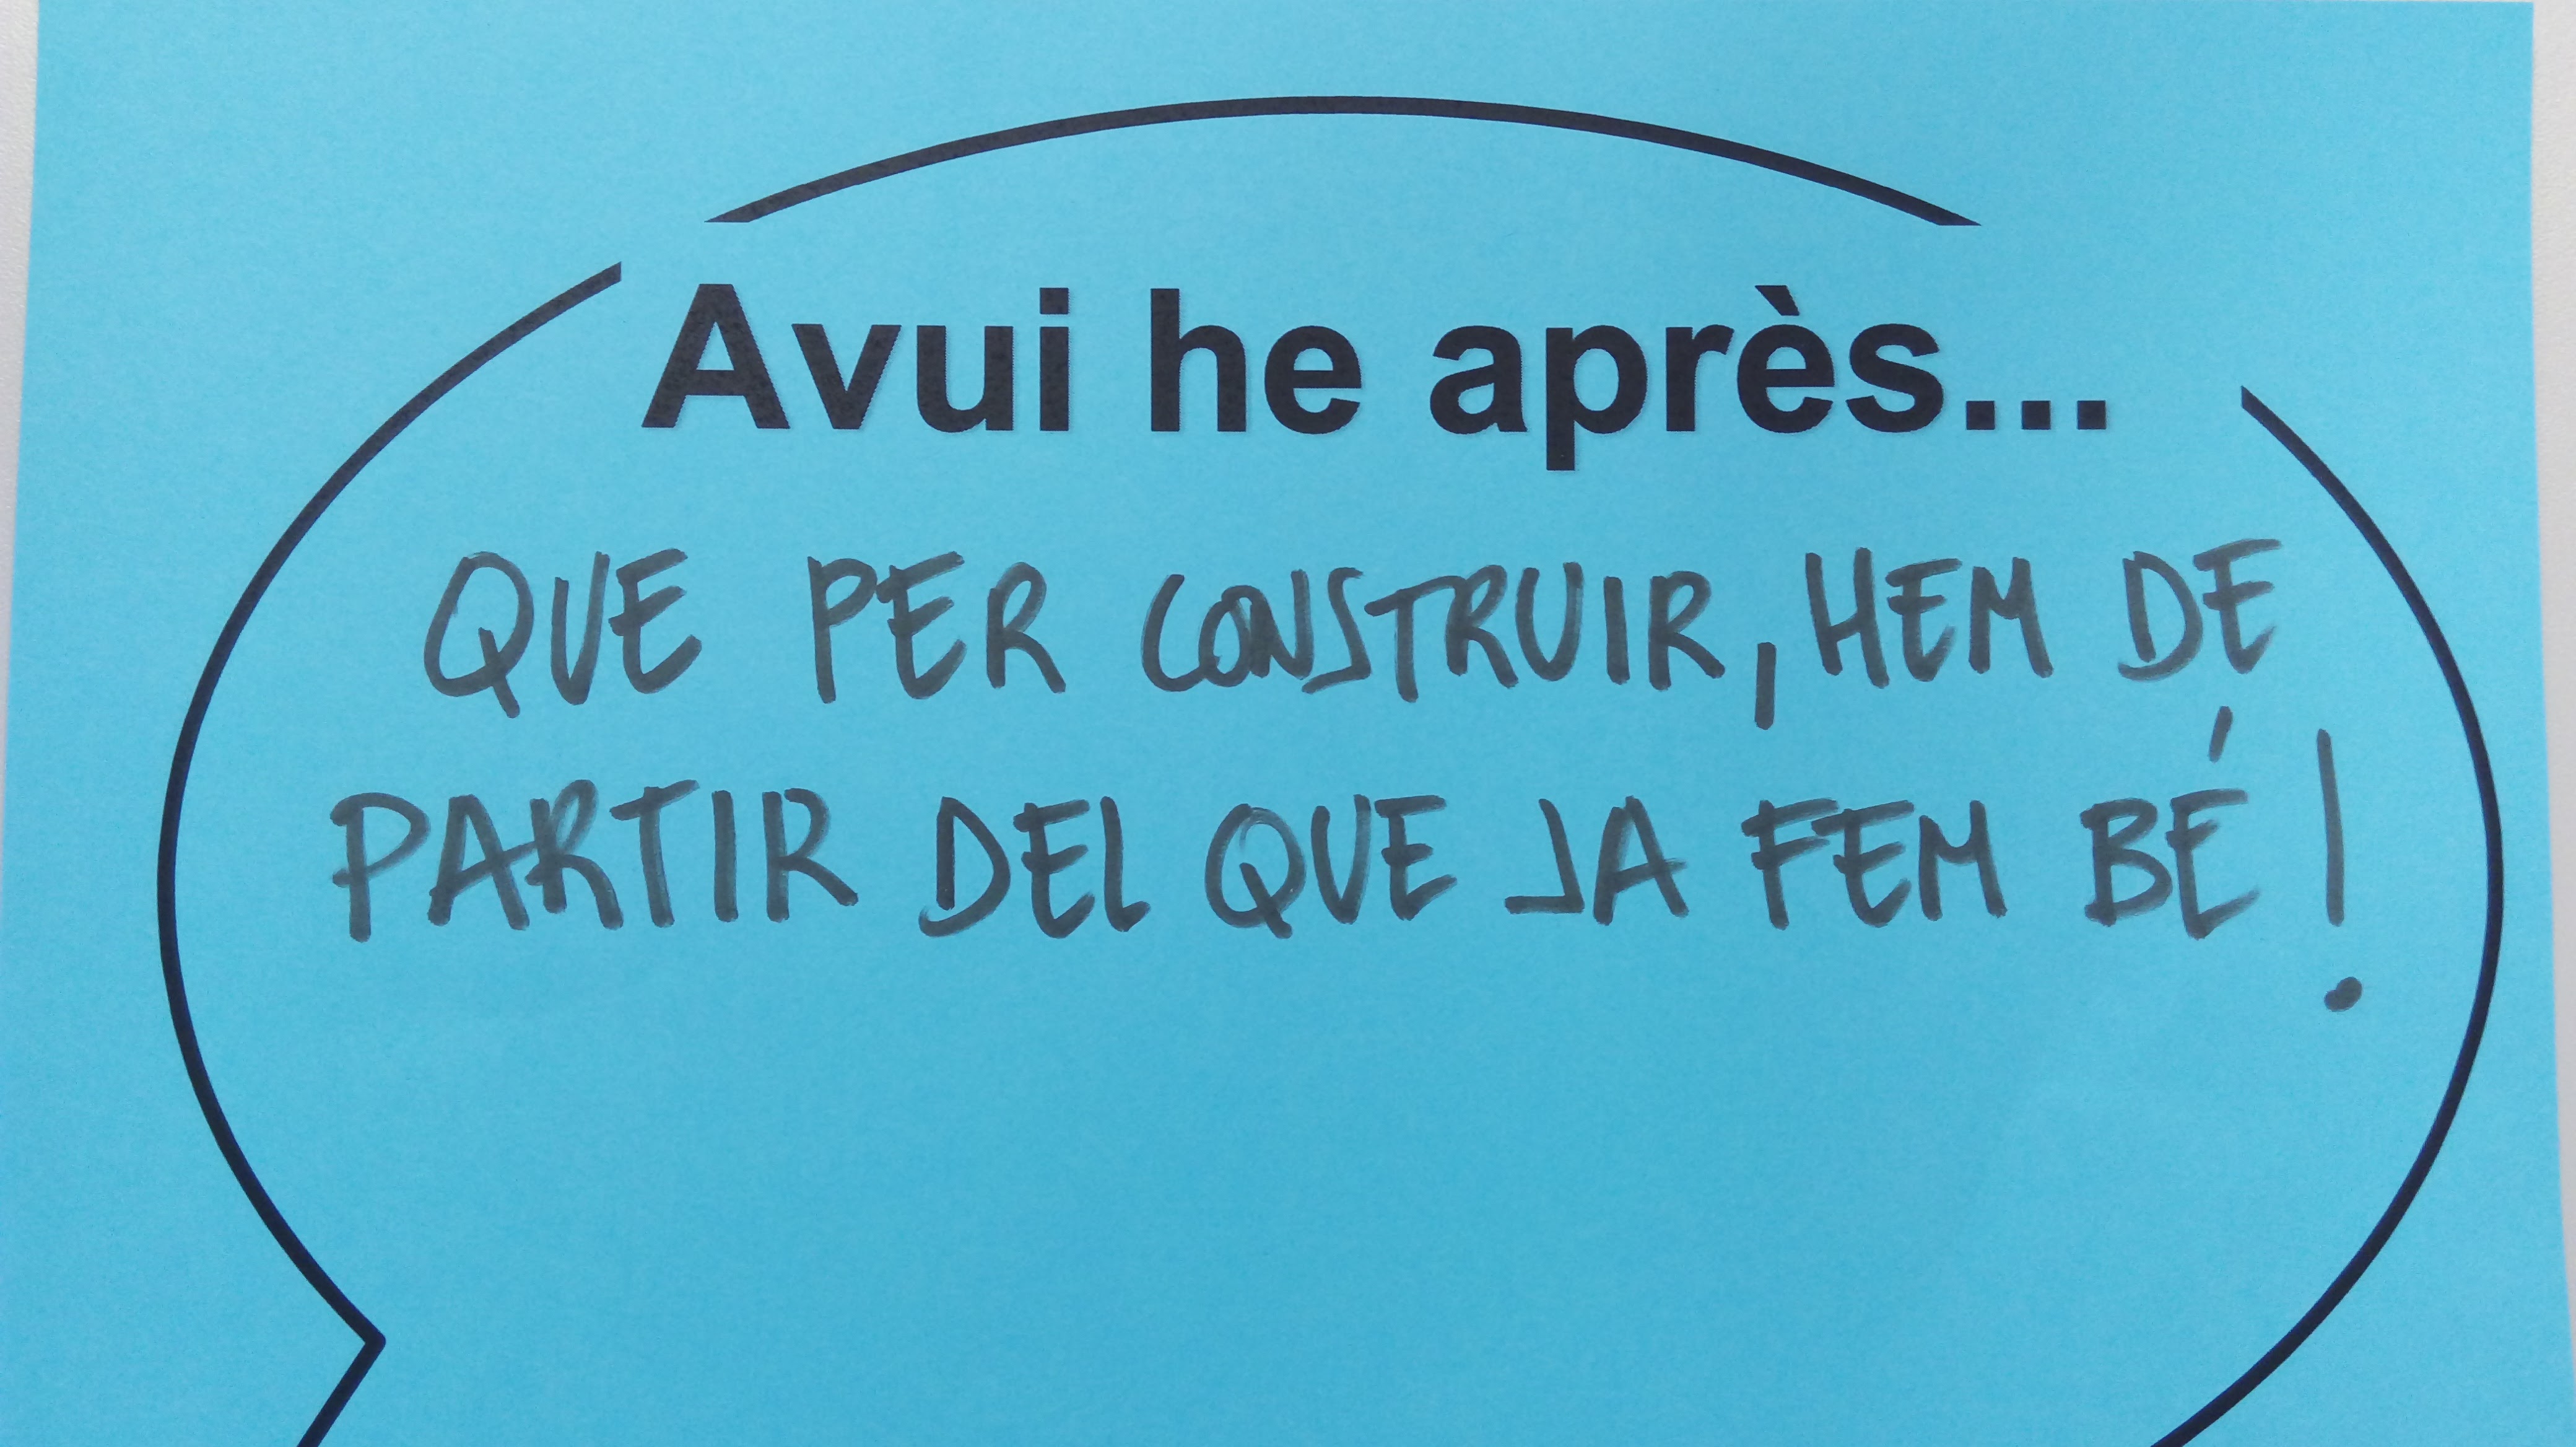 Avui he après...
QUE PER CONSTRUIR, HEM DE
PARTIR DEL QUE JA FEM BÉ!